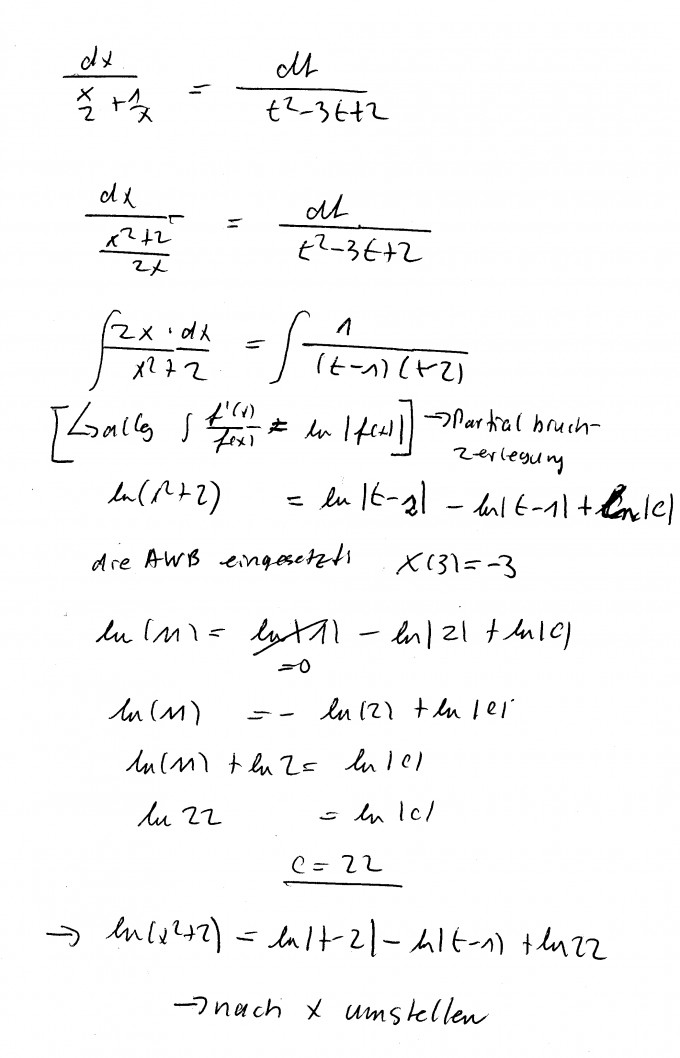 dx / (x/2 + 1/x) = dt / (t²-3t+2)
dx / ((x²+2)/2x) = dt / (t²-3t+2)
∫ 2x · dx / (x²+2) = ∫ 1 / ((t-1)(t-2))
[↳ allg ∫ f'(x)/f(x) = ln |f(x)|] → Partialbruch-
zerlegung
ln(x²+2) = ln |t-2| - ln|t-1| + ln|c|
die AWB eingesetzt: x(3) = -3
ln(11) = ln|1| - ln|2| + ln|c|
=0
ln(11) = - ln(2) + ln |c|
ln(11) + ln 2 = ln |c|
ln 22 = ln |c|
c = 22
→ ln(x²+2) = ln|t-2| - ln|t-1) + ln 22
→ nach x umstellen